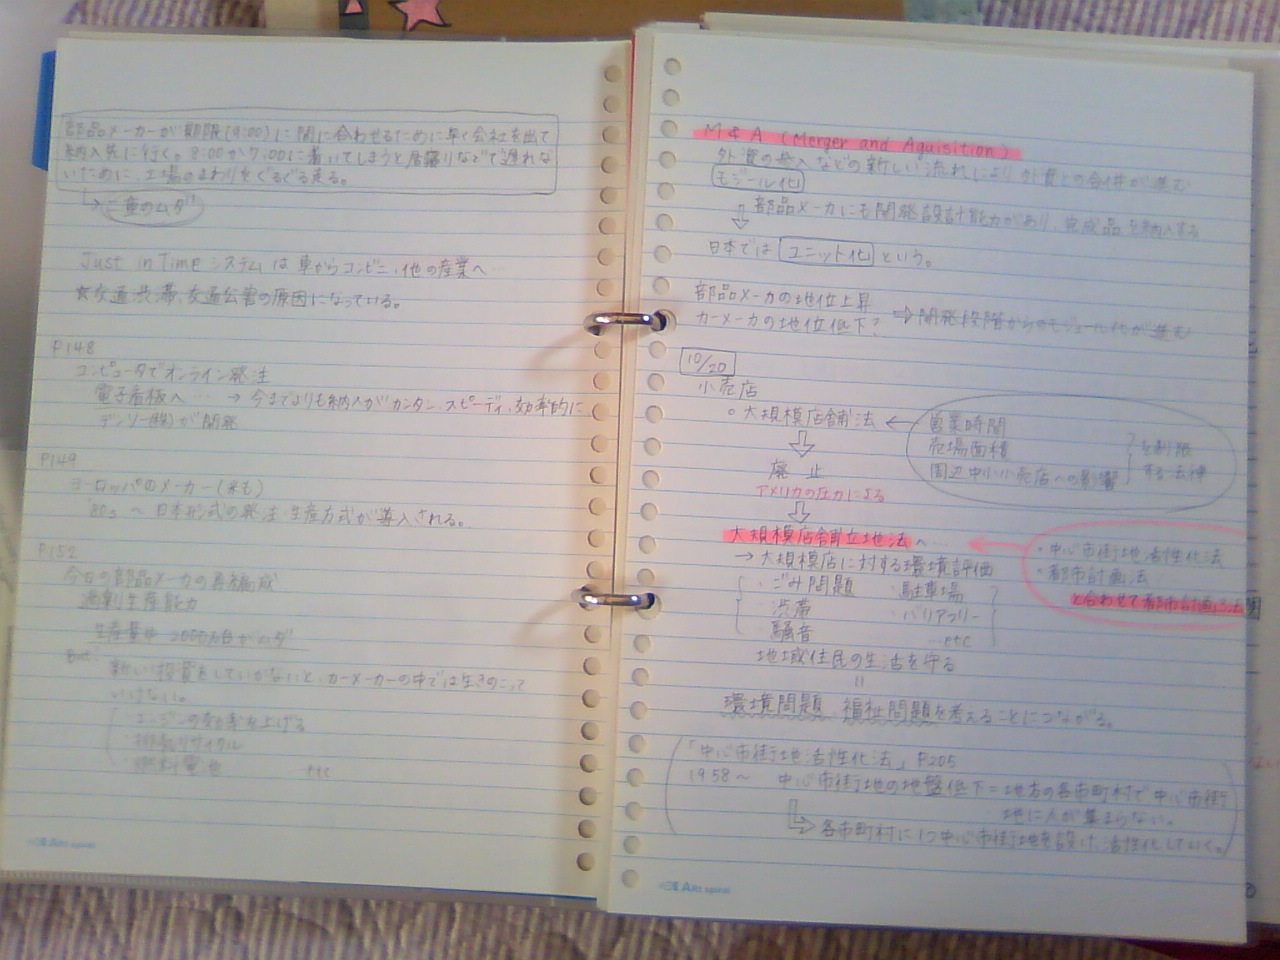 部品メーカーが期限(9:00)に間に合わせるために早く会社を出て
納入先に行く。8:00か7:00に着いてしまうと居寝りなどで遅れな
いために、工場のまわりをぐるぐる走る。
二重のムダ
Just in Time システムは車からコンビニ、他の産業へ
☆交通渋滞、交通公害の原因になっている。
P148
コンピュータでオンライン発注
電子看板へ… → 今までよりも納入がカンタン、スピーディ、効率的に
デンソー(株)が開発
P149
ヨーロッパのメーカー(米も)
'80s ～ 日本形式の発注・生産方式が導入される。
P152
今日の部品メーカの再編成
過剰生産能力
2000万台がムダ
But
新しい投資をしていかないと、カーメーカーの中では生きのこって
いけない。
・エンジンの効率を上げる
リサイクル
・燃料電池 etc
M & A (Merger and Aquisition)
外資の参入などの新しい流れにより外資との合併が進む
モジュール化
部品メーカにも開発設計能力があり、完成品を納入する
日本では ユニット化 という。
部品メーカの地位上昇
カーメーカの地位低下? ⇨ 開発段階からのモジュール化が進む
10/20
小売店
○大規模店舗法 ←
営業時間
売場面積
周辺中小小売店への影響
を制限
する法律
⇩
廃止
アメリカの圧力による
⇩
大規模店舗立地法へ…
・中心市街地活性化法
・都市計画法
と合わせて都市計画3法
→ 大規模店に対する環境評価
・ごみ問題 ・駐車場
・渋滞 ・バリアフリー
・騒音 …etc
地域住民の生活を守る
=
環境問題、福祉問題を考えることにつながる。
「中心市街地活性化法」P205
1958～ 中心市街地の地盤低下=地方の各市町村で中心市街
地に人が集まらない。
各市町村に1つ中心市街地を設け、活性化していく。